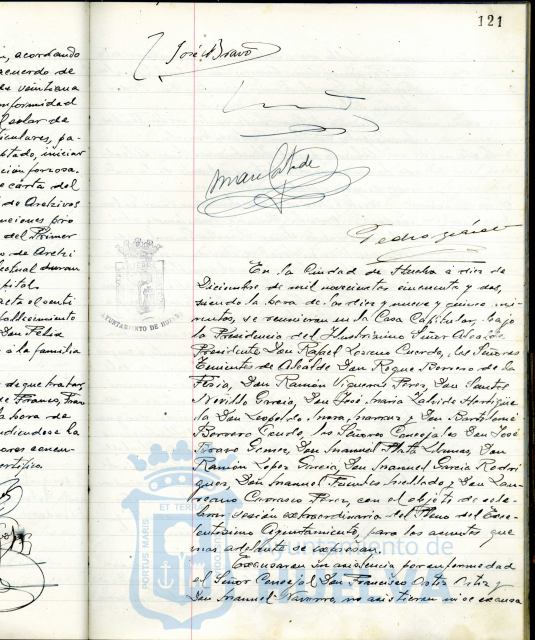 121
n, acordando
acuerdo de
de veintiuna
onformidad
l solar de
ticulares, pa-
ptado, iniciar
ción forzosa.
e carta del
de Archivos
nciones pro
del Primer
o de Archi
pital.
acta el senti
tablecimiento
Don Felix
a la familia
de que tratar,
la hora de
ndiendose la
certifico.
José Bravo
Pedro
AYUNTAMIENTO DE HUELVA
En la Ciudad de Huelva a diez de
Diciembre de mil novecientos cincuenta y dos,
siendo la hora de las diez y nueve y cinco mi-
nutos, se reunieron en la Casa Capitular, bajo
la Presidencia del Ilustrisimo Señor Alcalde
Presidente Don Rafael Lozano Cuerda, los Señores
Tenientes de Alcalde Don Roque Borrero de la
Feria, Don Ramón Vigueras Perez, Don Santos
Novillo Garcia, Don José Maria
la Don Leopoldo y Don Bartolomé
Borrero los Señores Concejales Don José
Tovaro Gomez, Don Manuel Plata Llamas, Don
Ramón López Garcia, Don Manuel Garcia Rodri
guez, Don Manuel Fuentes y Don Lau-
reano Carrasco Perez, con el objeto de cele-
brar sesión extraordinaria del Pleno del Exce-
lentisimo Ayuntamiento, para los asuntos que
mas adelante se expresan.
Excusaron su asistencia por enfermedad
el Señor Concejal Don Francisco Ortiz Ortiz y
Don Manuel Navarro, no asistieron ni se excusa
PORTUS MARIS ET TERRAE
Ayuntamiento de
HUELVA